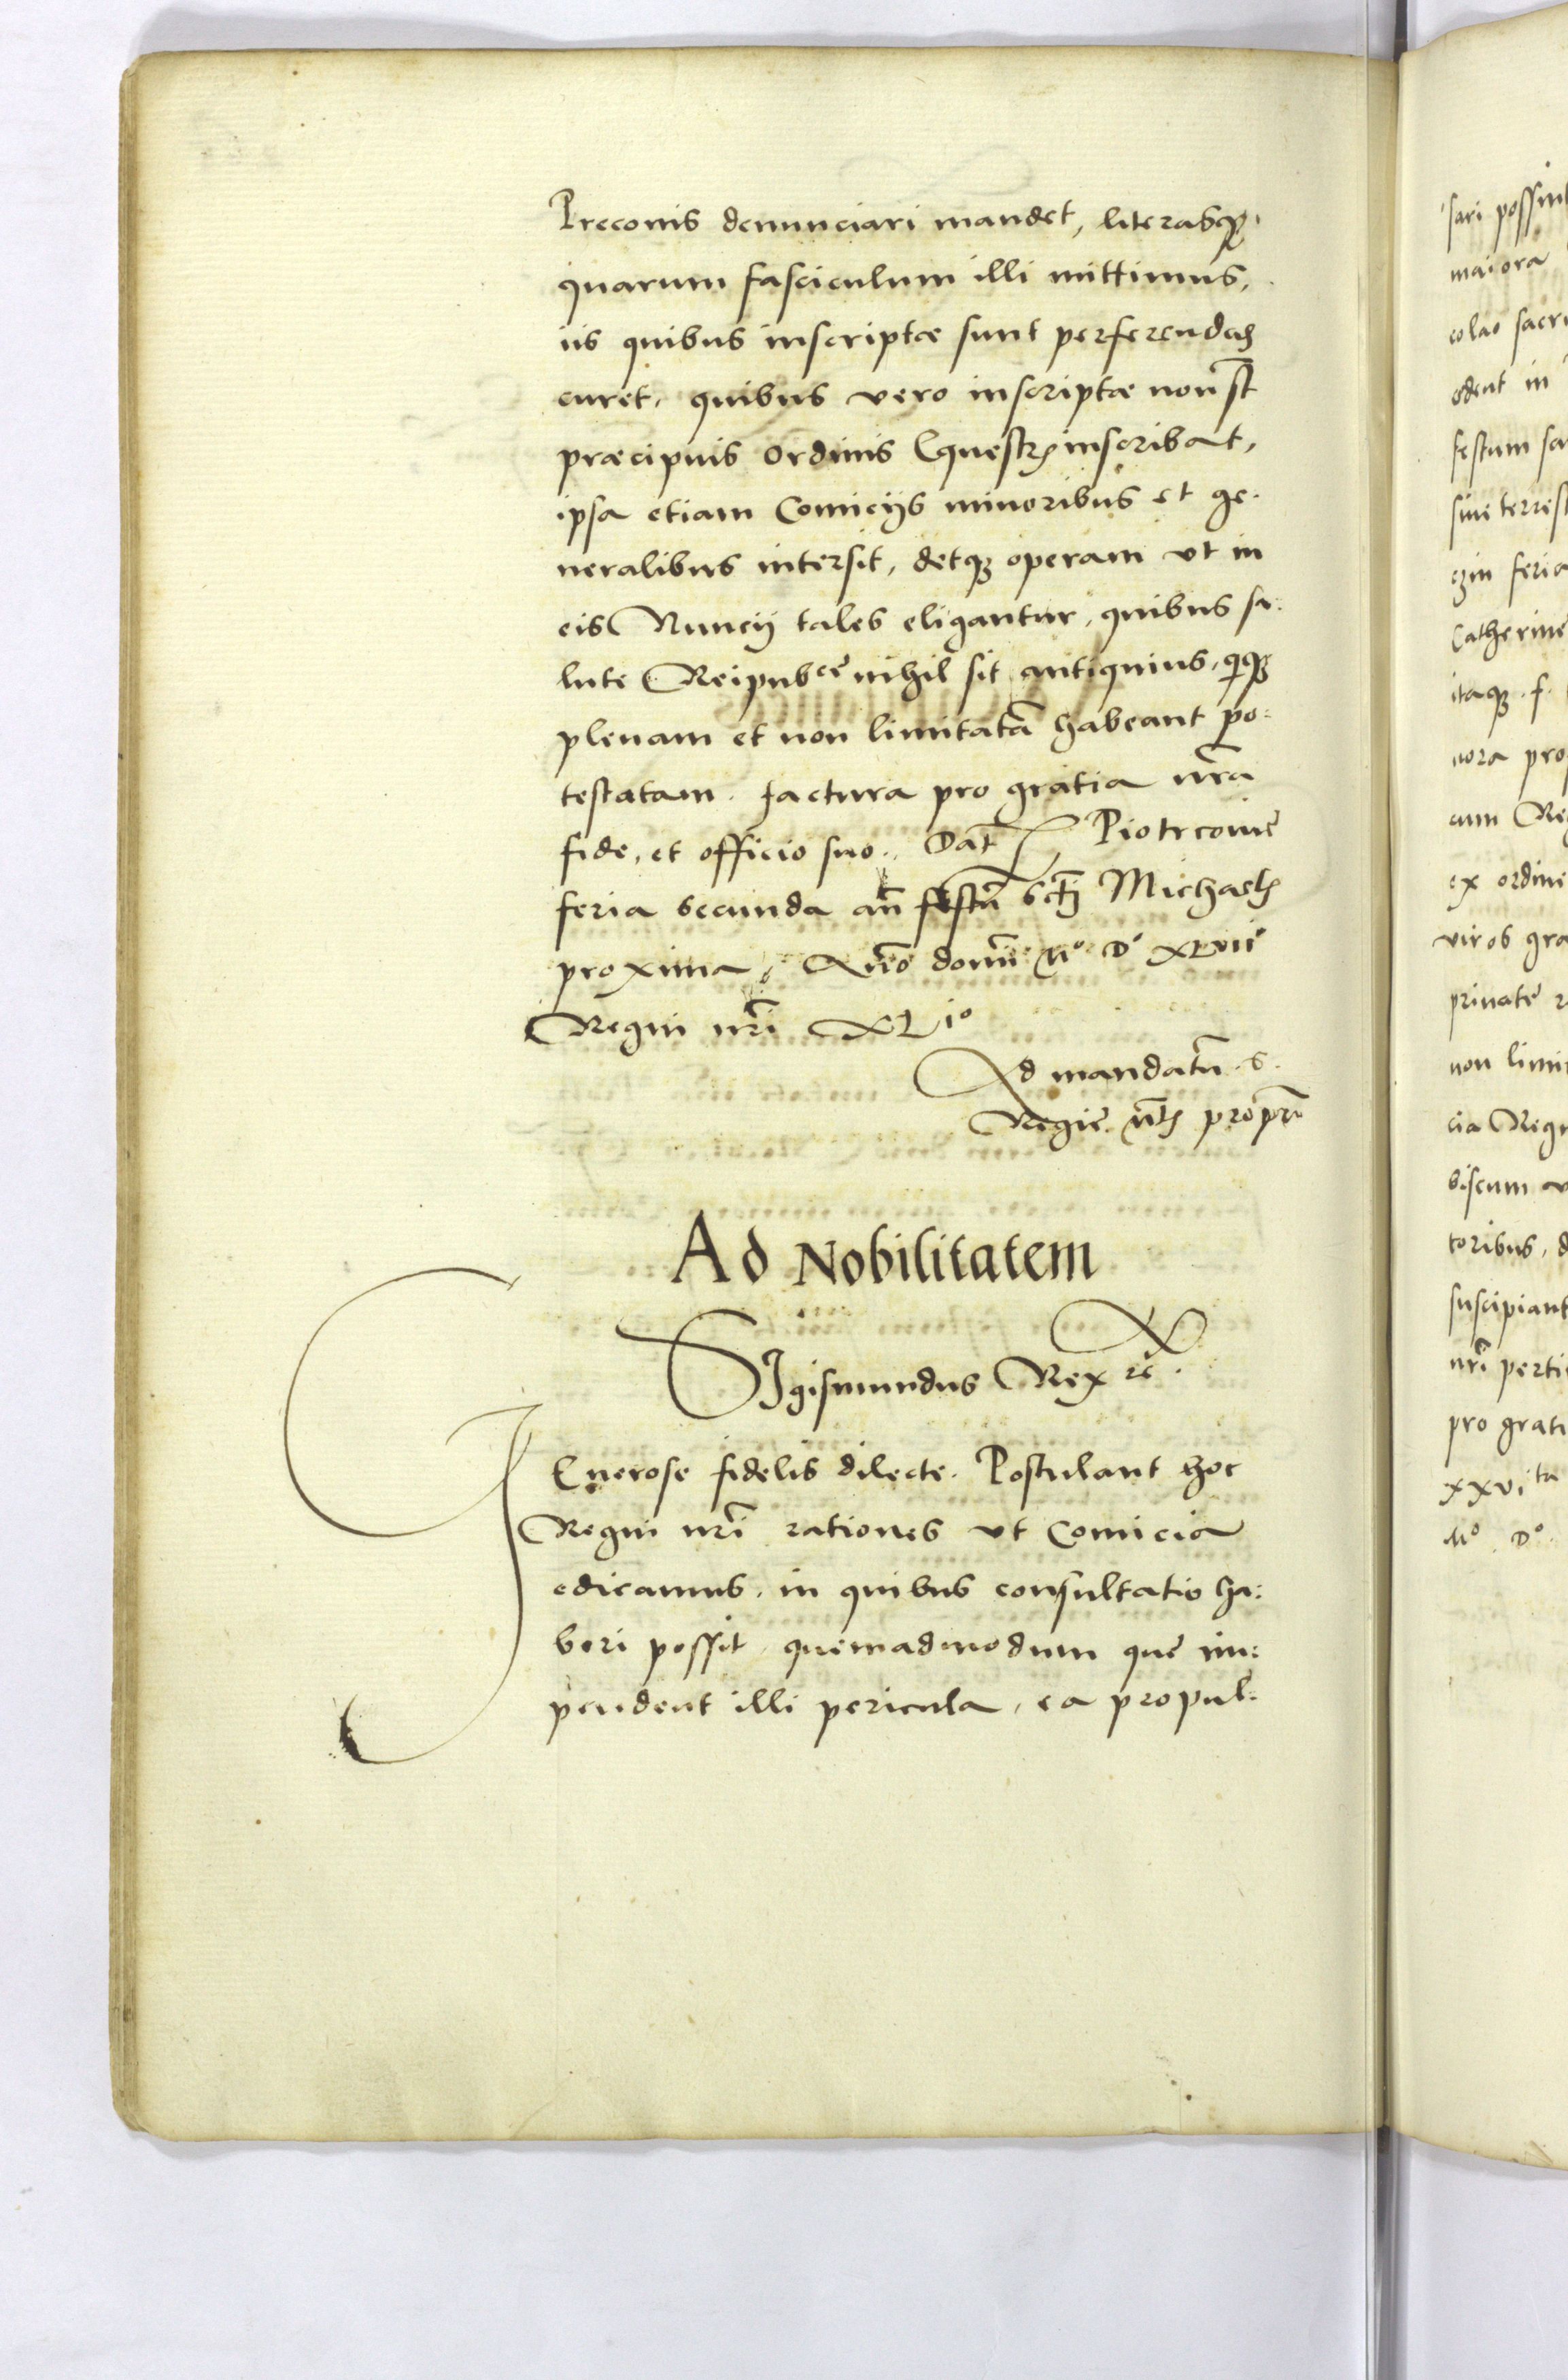 Preconis denunciari mandet, literasq₃
quarum fasciculum illi mittimus,
iis quibus inscriptæ sunt perferendas
curet, quibus vero inscriptæ non st̃
præcipuis ordinis Equestris inscribat,
ipsa etiam Comicijs minoribus et ge-
neralibus intersit, detq₃ operam vt in
eis Nuncij tales eligantur, quibus sa:
lute Reipub^ce nihil sit antiquius, qiq₃
plenam et non limitatã habeant po:
testatam. factura pro gratia nr̃a
fide, et officio suo. Dat̃ Piotrcouie
feria secunda añ festũ scti Michaelis
proxima, Año domi M° D° XLvii°
Regni nr̃i XL i°
Ad mandatũ S.
Regie Mtis propr̃
Ad Nobilitatem
Sigismundus Rex rc.
GEnerose fidelis dilecte. Postulant hoc
Regni nr̃i rationes vt Comicia
edicamus, in quibus consultatio ha:
beri possit, quemadmodum que im:
pendent illi pericula, ea propul:
sari possint
maiora
colao sacri
edent in
festum sa
siue terrest
ezin feria
Catherine
itaq₃. f.
nora pro
cum Re
ex ordine
viros gra
priuate
non limi
cia Regn
biscum v
toribus, d
suscipiant
nr̃i perti
pro grati
xxvi ta
M° D°